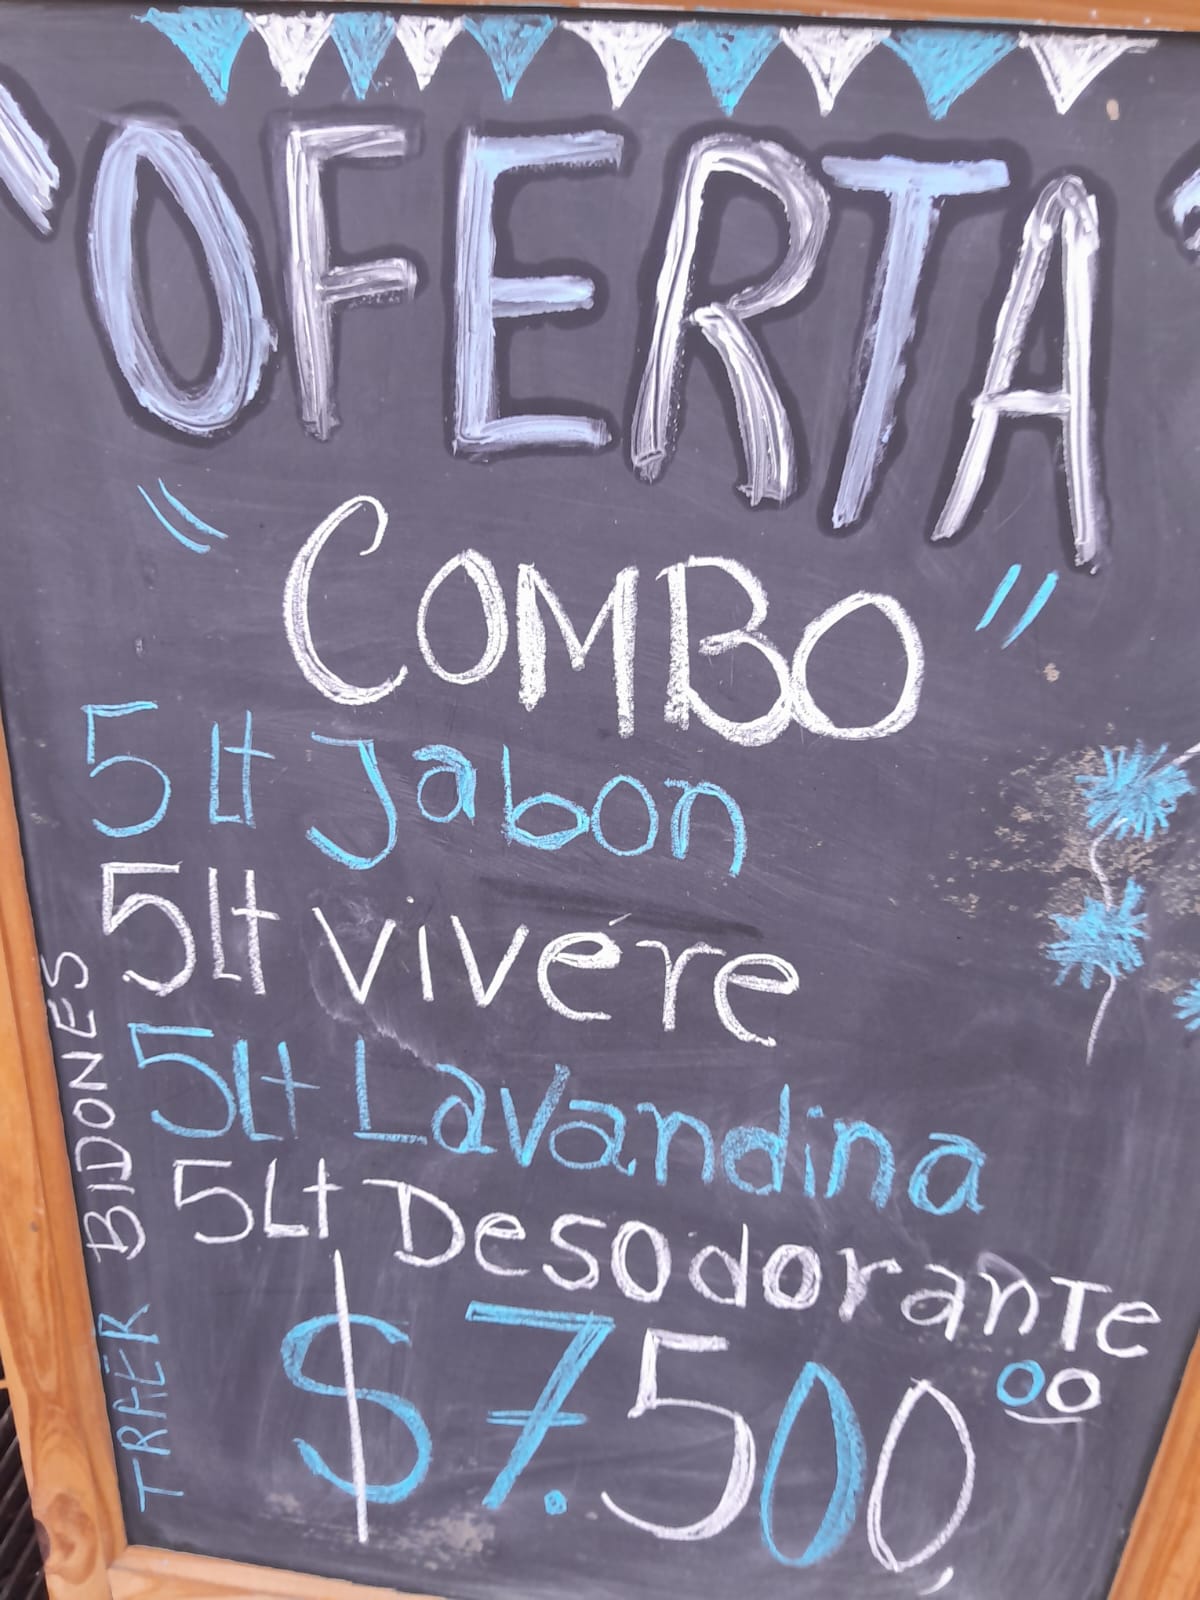 "OFERTA"
"COMBO"
5Lt Jabon
5Lt vivére
5Lt Lavandina
5Lt DesodoranTe
$7.500,00
TRAER BIDONES